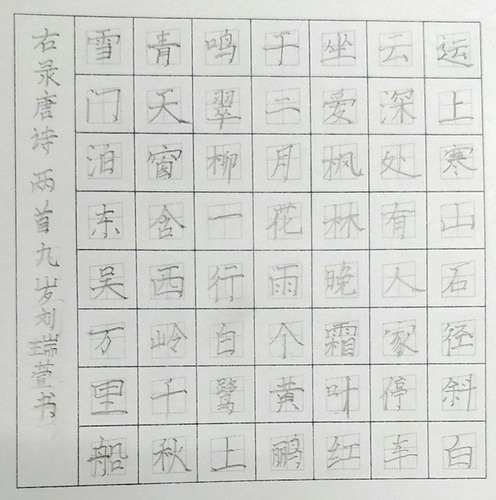 运上寒山石径斜白
云深处有人家停车
坐爱枫林晚霜叶红
于二月花雨个黄鹂
鸣翠柳一行白鹭上
青天窗含西岭千秋
雪门泊东吴万里船
右录唐诗两首九岁刘瑞萱书